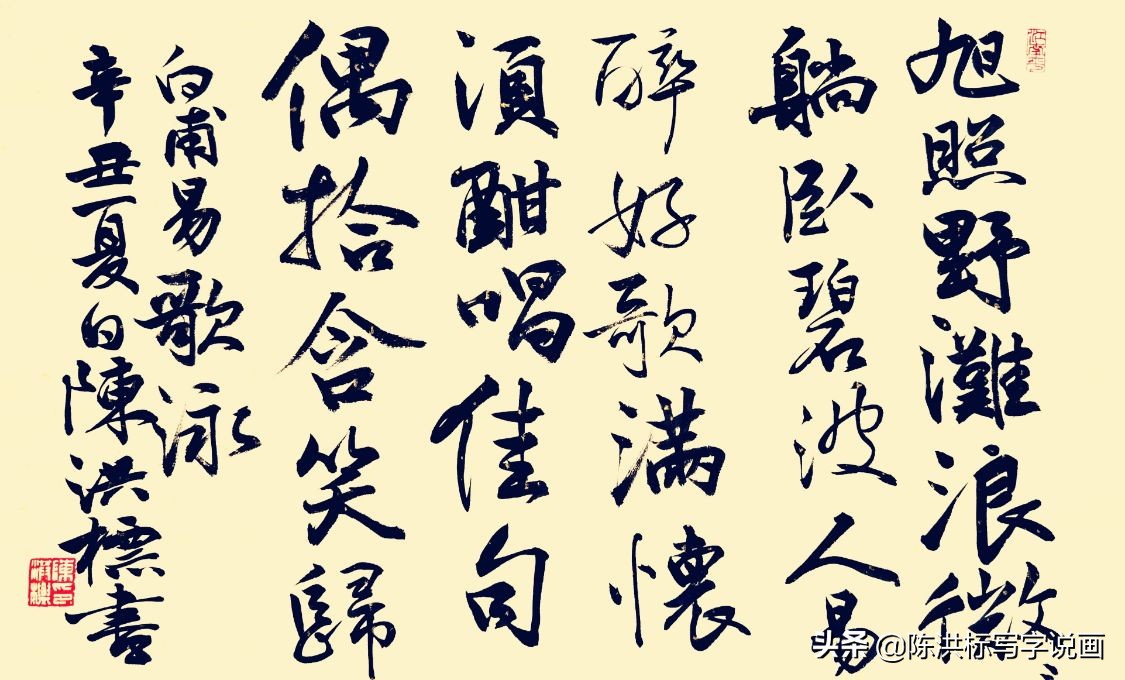 旭照野灘浪微〻
躺臥碧波人易
醉好歌满懷
須酣唱佳句
偶拾含笑歸
白甫易歌泳
辛丑夏日陳洪標書
头条 @陈洪标写字说画